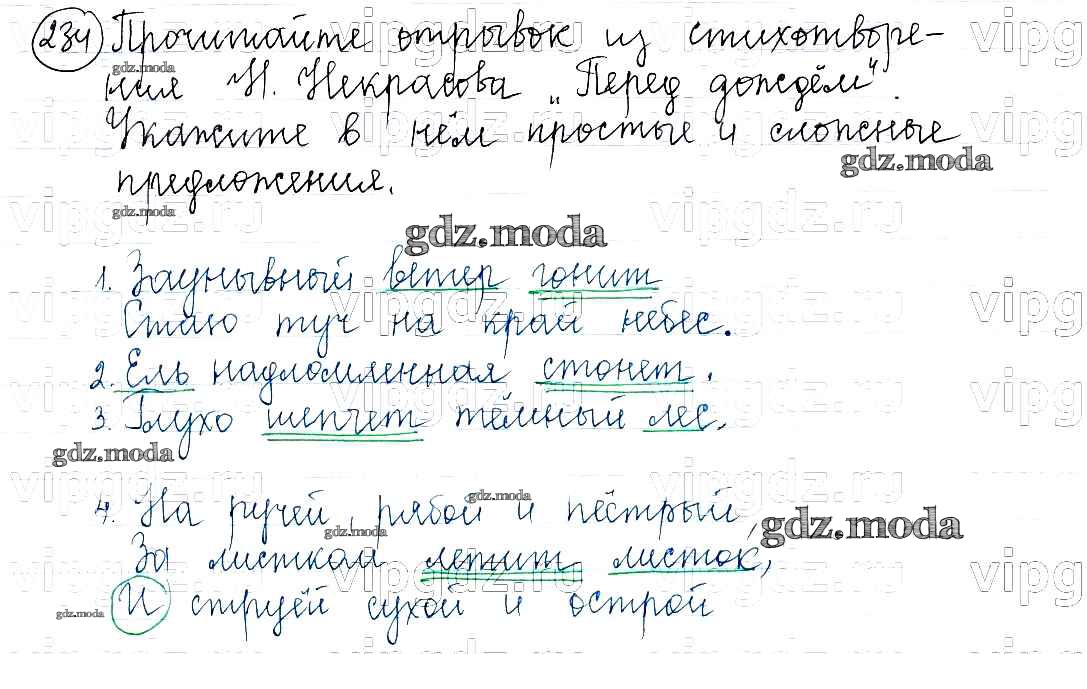 234 Прочитайте отрывок из стихотворе-
ния Н. Некрасова „Перед дождём".
Укажите в нём простые и сложные
предложения.
1. Заунывный ветер гонит
Стаю туч на край небес.
2. Ель надломленная стонет.
3. Глухо шепчет тёмный лес.
4. На ручей, рябой и пёстрый,
За листком летит листок,
И струёй сухой и острой